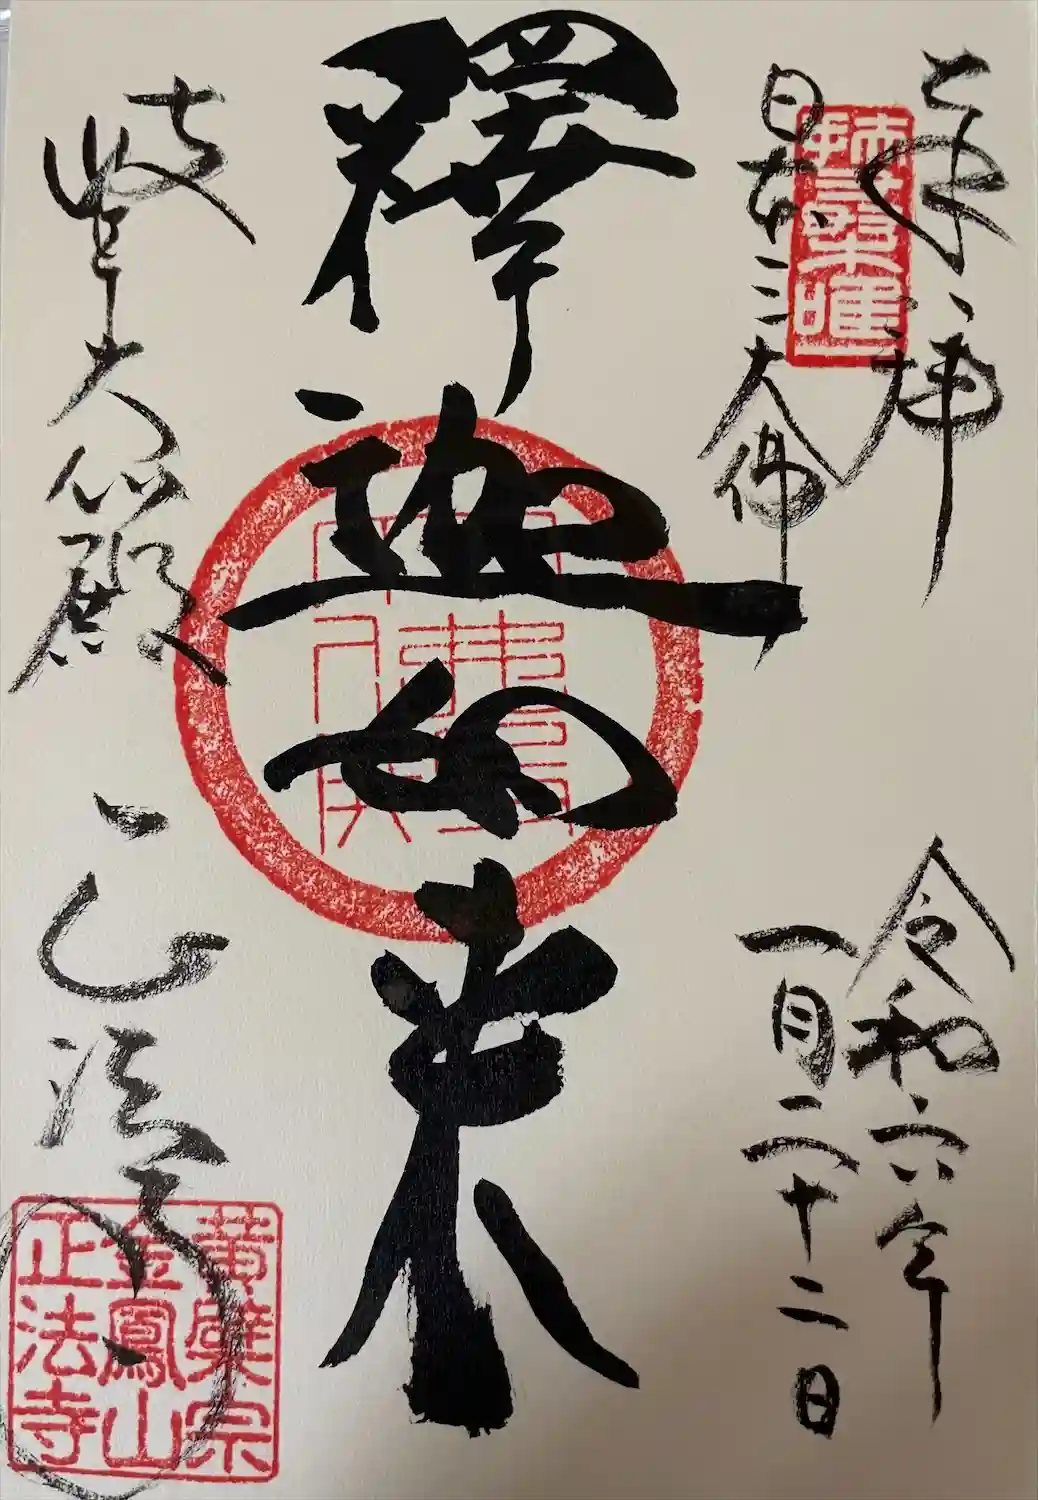 奉拝
令和六年
日本三大佛
一月二十二日
釋迦如来
岐阜大仏殿
正法寺
黄檗宗
金鳳山
正法寺